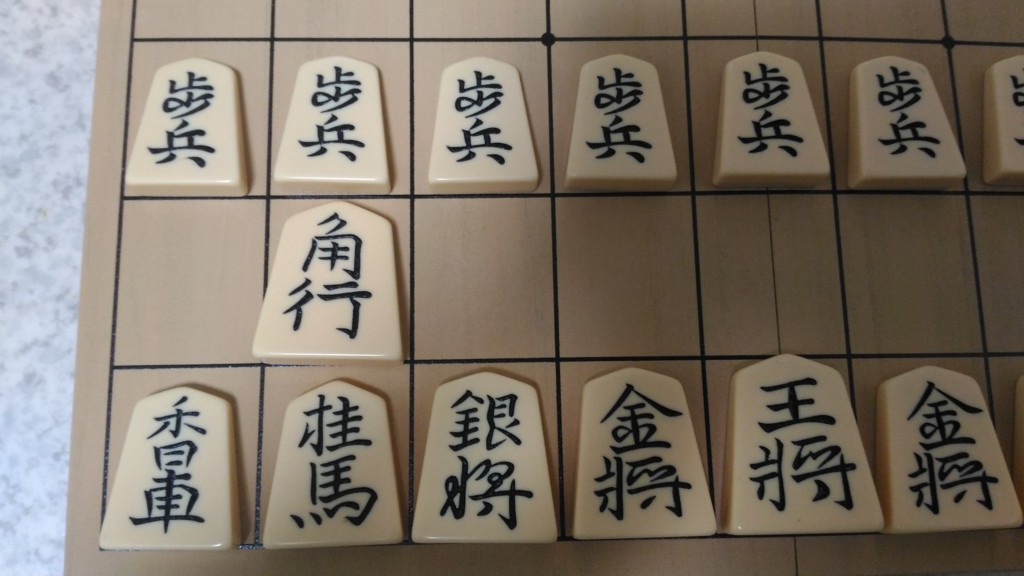 歩兵 歩兵 歩兵 歩兵 歩兵 歩兵
角行
香車 桂馬 銀将 金将 王将 金将